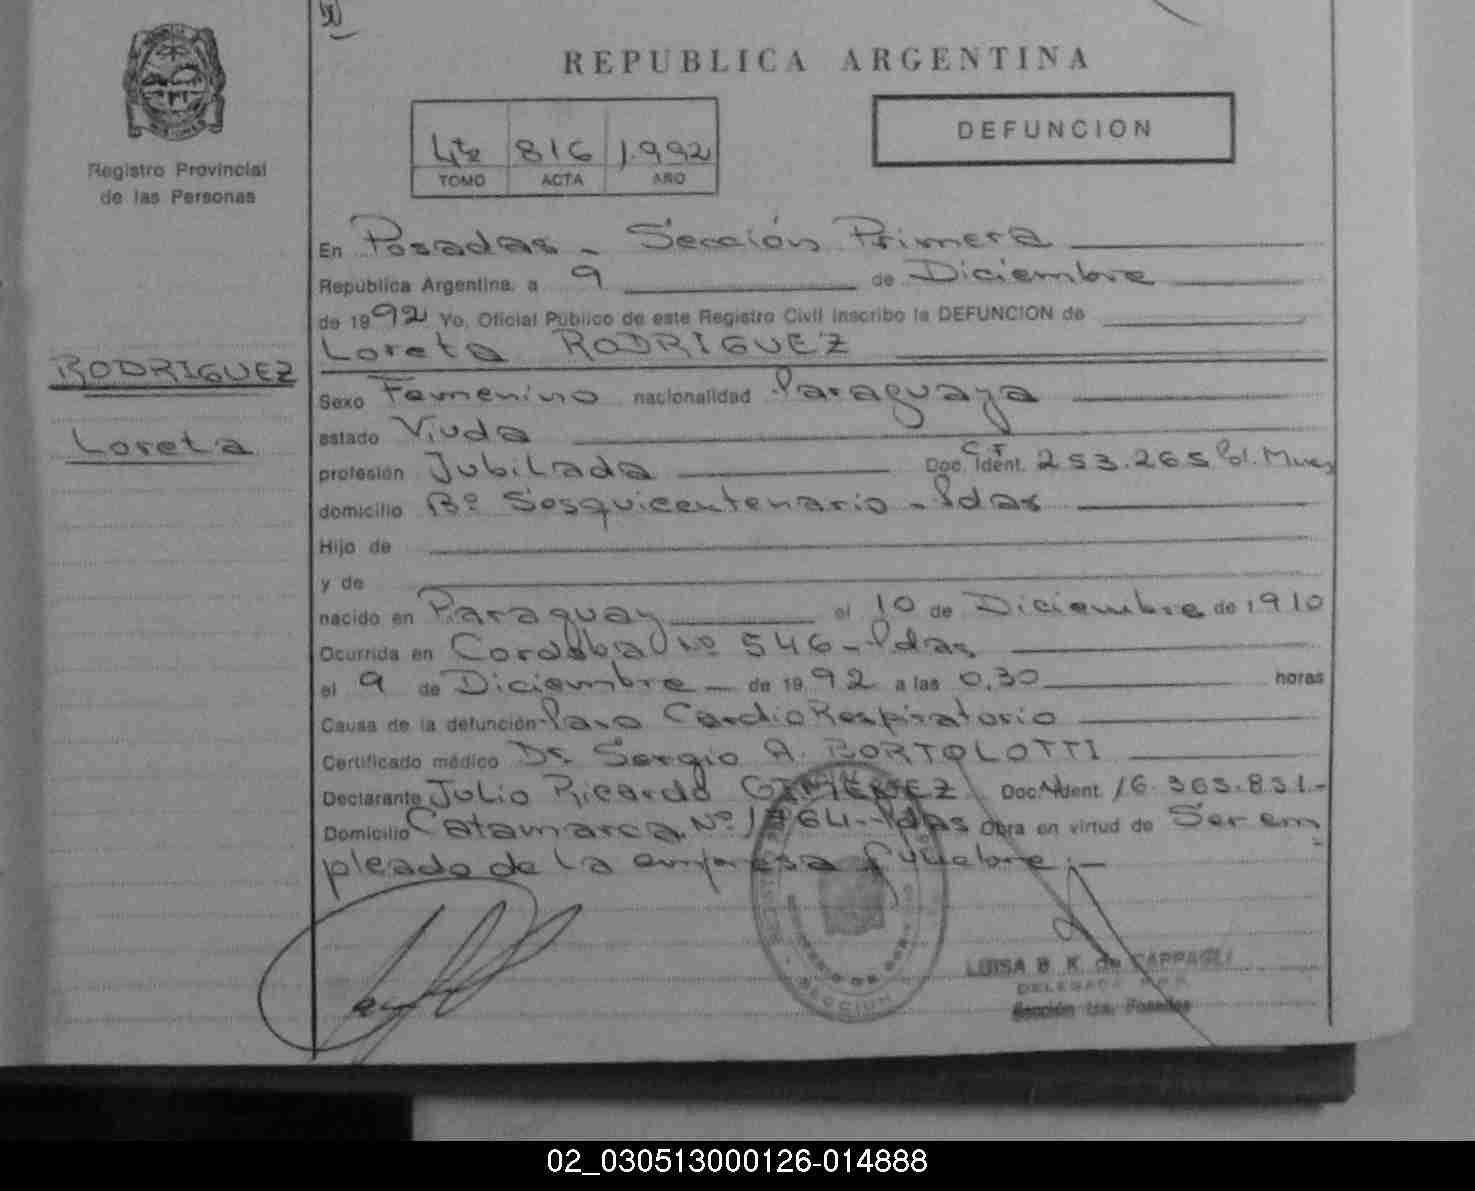 REPUBLICA ARGENTINA
DEFUNCION
816 1.992
TOMO ACTA AÑO
Registro Provincial
de las Personas
En Posadas - Sección Primera
República Argentina, a 9 de Diciembre
de 1992 Yo, Oficial Público de este Registro Civil inscribo la DEFUNCION de
Loreta RODRIGUEZ
RODRIGUEZ
Loreta
Sexo Femenino nacionalidad Paraguaya
estado Viuda
profesión Jubilada Doc. Ident. C.I. 253.265 Pol. Mnes
domicilio Bº Sesquicentenario - Pdas
Hijo de
y de
nacido en Paraguay el 10 de Diciembre de 1910
Ocurrida en Cordoba Nº 546 - Pdas
el 9 de Diciembre - de 1992 a las 0,30 horas
Causa de la defunción Paro CardioRespiratorio
Certificado médico Dr. Sergio A. BORTOLOTTI
Declarante Julio Ricardo GIMENEZ Doc. Ident. 16.363.831.-
Domicilio Catamarca Nº Pdas Obra en virtud de Ser em
pleado de la empresa fúnebre.-
SECCION
LUISA B. K. de CAPPAGLI
DELEGADA
Sección 1ra. Posadas
02_030513000126-014888